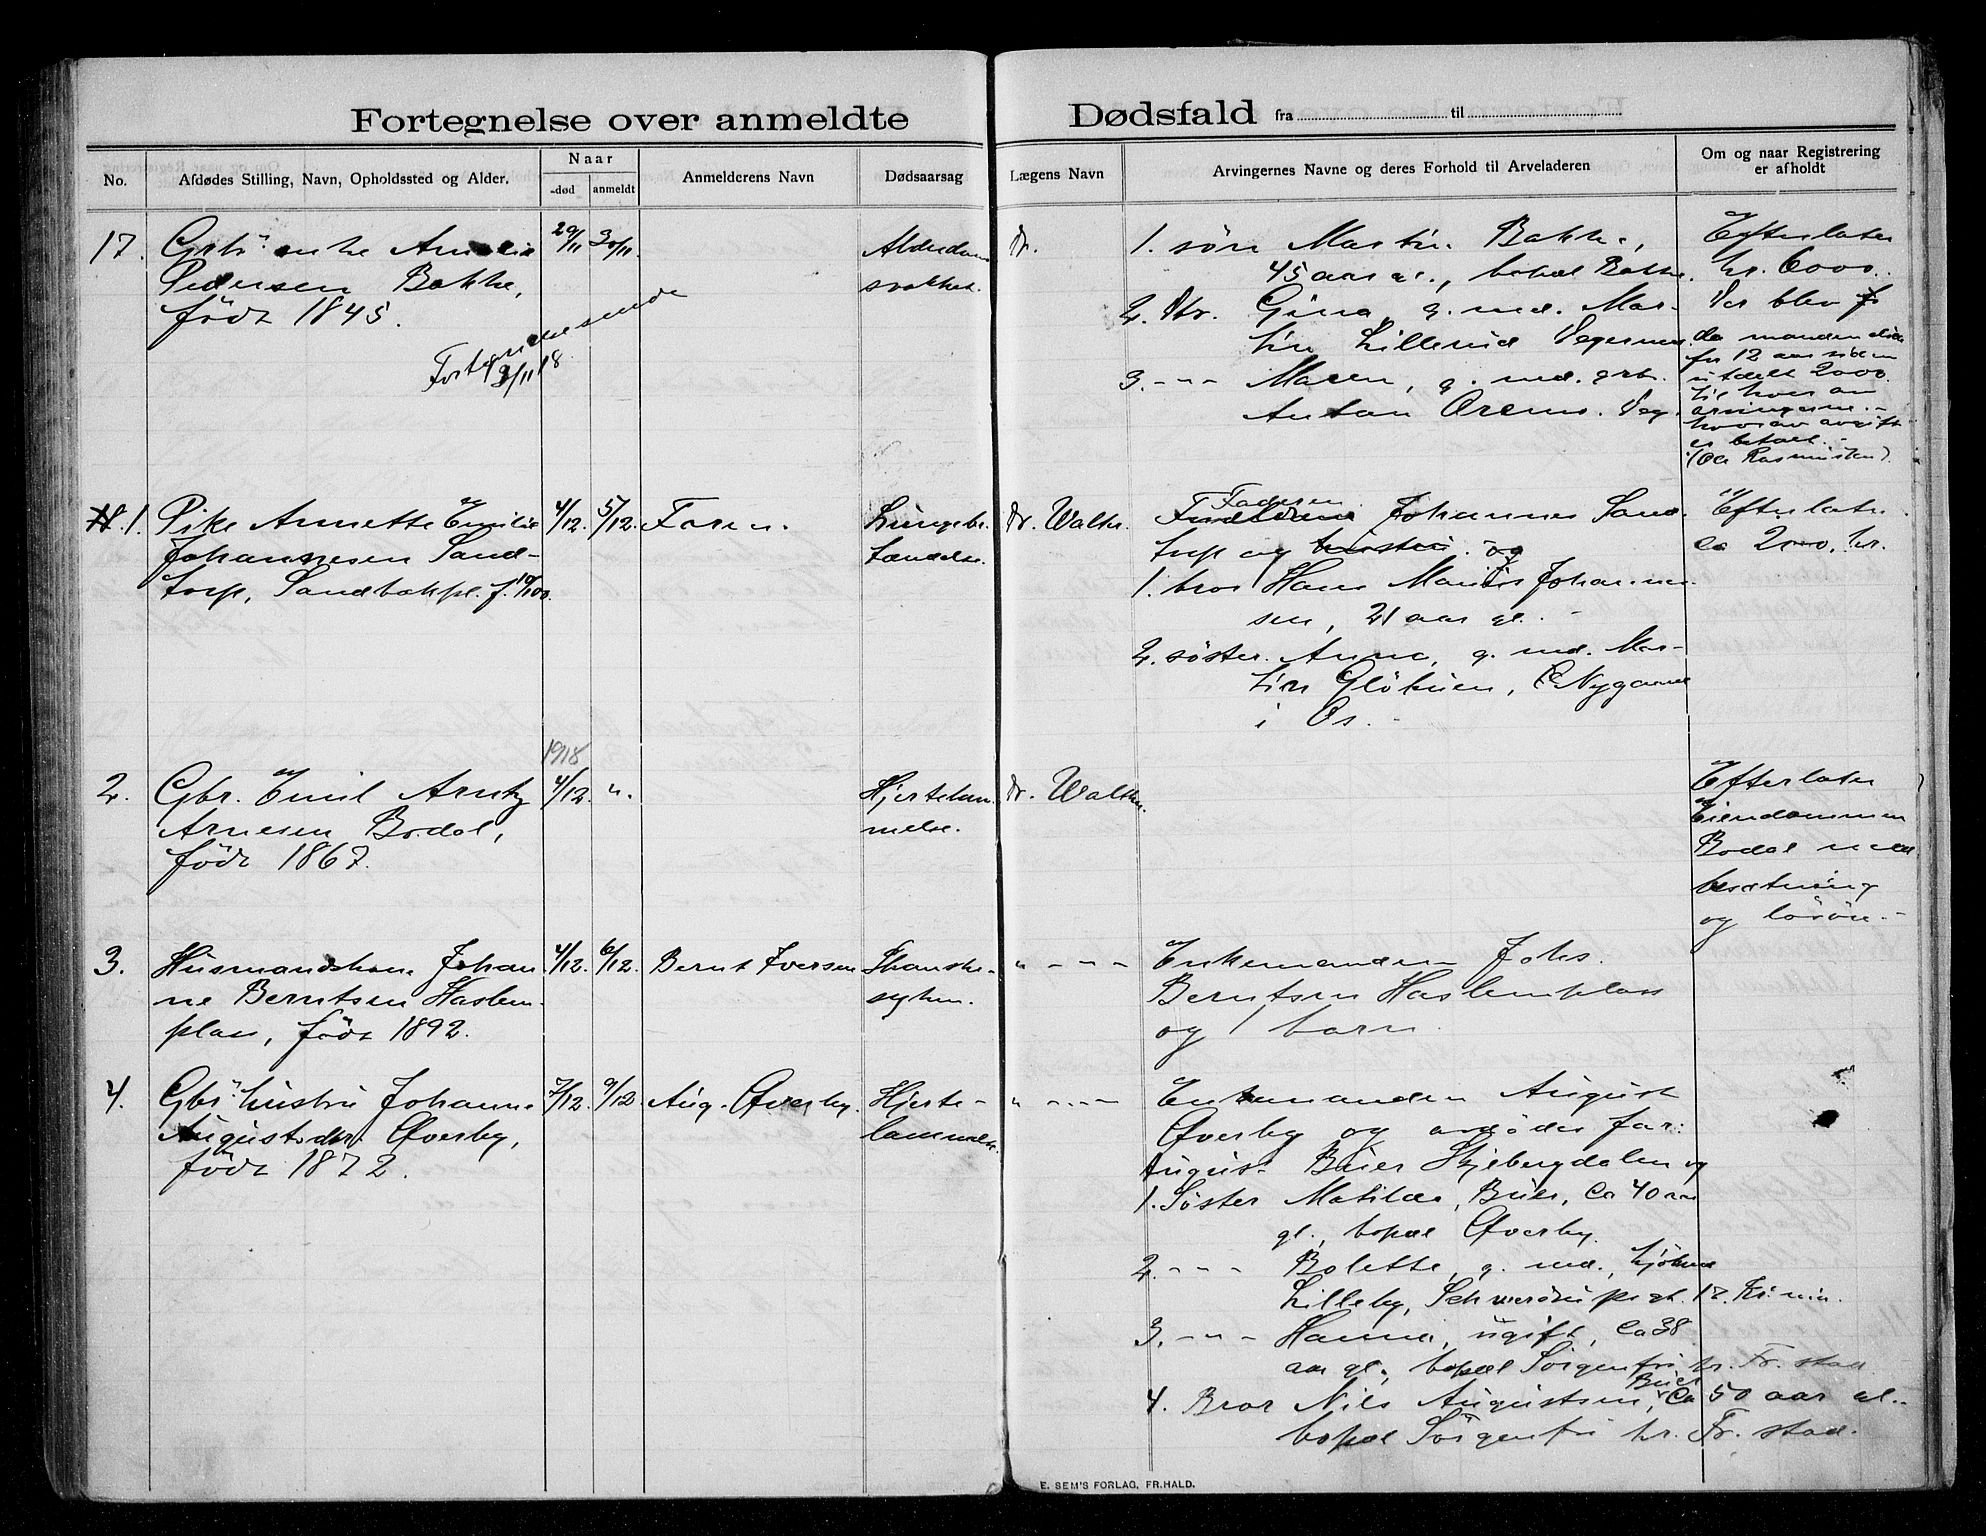 Fortegnelse over anmeldte Dødsfald fra til
No.
Afdødes Stilling, Navn, Opholdssted og Alder.
Naar
-død
anmeldt
Anmelderens Navn
Dødsaarsag
Lægens Navn
Arvingernes Navne og deres Forhold til Arveladeren
Om og naar Registrering
er afholdt
17. Grbr enke
Pedersen Bakke,
født 1845.
29/11 30/11.
Alderdoms
svakhet.
Dr.
1. søn Martin Bakke,
45 aar gl., bopæl Bakke.
2. Dtr. Gina, g. med. Mar-
tin Lillerud
3. - " - Maren, g. med. grb.
Anton
Efterlater
kr. 6000.
Der blev
da manden døde
for 12 aar siden
utdelt 2000
til hver av
arvingerne. -
hvorav avgift
er betalt. -
(Ole Rasmussen).
18. 1. Pike Annette Emilie
Johannesen Sand-
torp, Sandbakpl. f. 19/1 00.
4/12. 5/12. Faren.
Lungebe-
tændelse.
Dr. Walter.
Faderen Johannes Sand-
torp og og
1. bror Hans Johannes-
sen, 21 aar gl. -
2. søster. Anna, g. med. Mar-
tin Nygaard
i Os. -
Efterlater
ca 2000, kr.
1918
2. Gbr. Emil Arntz
Arnesen Bodal,
født 1867.
4/12. ".
Hjertelam-
melse.
Dr. Walter.
Efterlater
Eiendommen
Bodal med
besætning
og løsøre. -
3. Husmandskone Johan
ne Berntsen Haslem-
plas, født 1892.
4/12. 6/12. Bernt Iversen
Spanske-
syken.
" - - -
Enkemanden Johs.
Berntsen Haslemplass
og 1 barn.
4. Gbr. hustru Johanne
Augustsdtr. Øverby,
født 1872.
7/12. 9/12 Aug. Øverby.
Hjerte-
lammelse.
" - - - -
Enkemanden August
Øverby og avdødes far:
August Buer Skjebergdalen og
1. Søster Matilde, Buer, ca 40 aar
gl., bopæl Øverby.
2. - " - Bolette, g. med.
Lilleby, Schwerdrupsgt. 17. Kr.nia.
3. - " - Hanna, ugift, ca 38
aar gl., bopæl Sorgenfri pr. Fr. stad
4. Bror Nils Augustsen Buer, ca 50 aar gl. -
bopæl Sorgenfri pr. Fr. stad.
E. SEM'S FORLAG, FR.HALD.